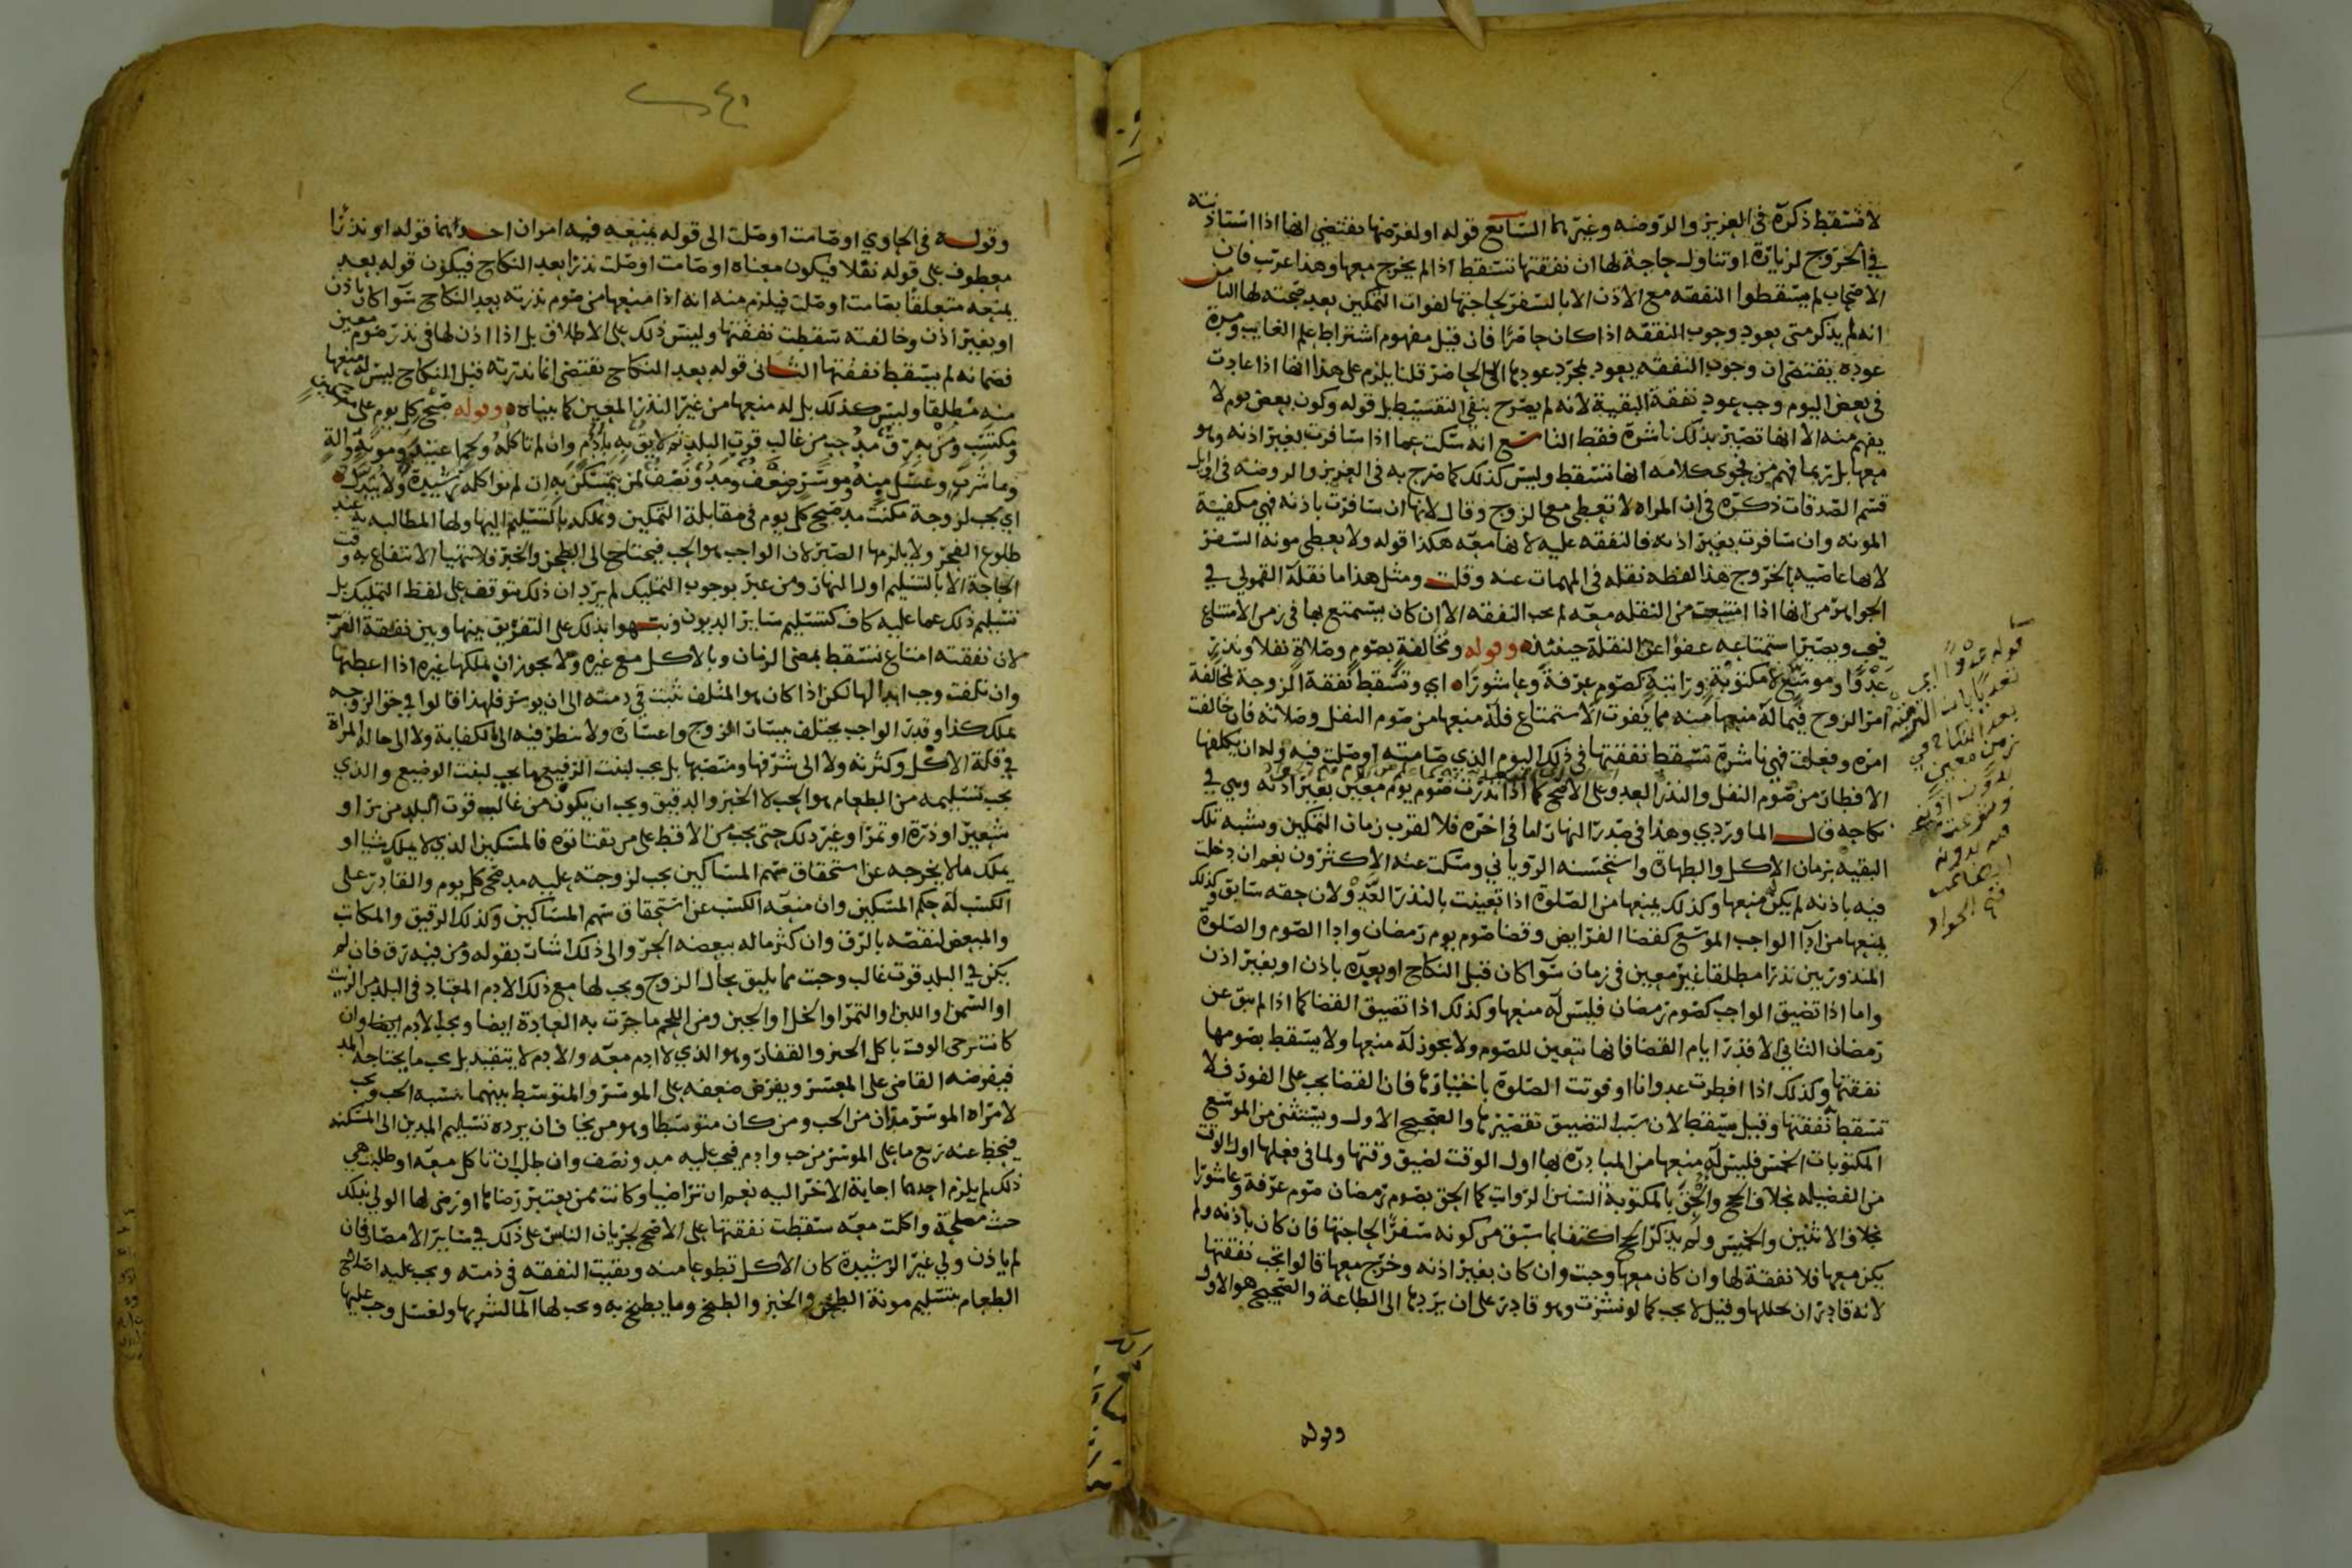 لا تسقط ذكره في العزيز والروضه وغيرهما السابع قوله او لغرضها يقتضي انها اذا استاذنته
في الخروج لزيارة او تناول حاجة لها ان نفقتها تسقط اذا لم يخرج معها وهذا عرتب فان
الاصحاب لم يسقطوا النفقه مع الاذن الا بالسفر لحاجتها لفوات التمكين بعد صحته لها الثامن
انه لم يذكر متى يعود وجوب النفقه اذا كان حاضرا فان قيل مفهوم اشتراط علم الغايب ومرة
عوده يقتضي ان وجوب النفقه يعود لمجرد عودها الى الحاضر قلنا يلزم على هذا انها اذا عادت
في بعض اليوم وجب عود نفقة البقية لانه لم يصرح بنفي التقسيط بل قوله وكون بعض يوم لا
يفهم منه الا انها تصير بذلك ناشزة فقط التاسع انه سكت عما اذا سافرت بغير اذنه وهو
معها بل ربما فهم من فحوى كلامه انها تسقط وليس كذلك كما صرح به في العزيز والروضه في اوايل
قسم الصدقات ذكره في ان المراه لا تعطى مع الزوج وقال لانها ان سافرت باذنه فهي مكفية
المونه وان سافرت بغير اذنه فالنفقه عليه لانها معه هكذا قوله ولا يعطى مونه السفر
لانها عاصيه بالخروج هذا لفظه نقله في المهمات عنه وقلت ومثل هذا ما نقله القمولي في
الجواهر من انها اذا امتنعت من النقله معه لم يجب النفقه الا ان كان يستمتع بها في زمن الامتناع
فيجب ويصير استمتاعه عفوا عن النقلة حينئذ وقوله ومخالفة بصوم وصلاة نفلا ونذر
عدوا وموسع لا مكتوبة وراتبة كصوم عرفة وعاشورا اي وتسقط نفقة الزوجة لمخالفة
امر الزوج فيما له منعها منه مما يفوت الاستمتاع فله منعها من صوم النفل وصلاته فان خالفت
امره وفعلت فهي ناشزة تسقط نفقتها في ذلك اليوم الذي صامته او صلت فيه وله ان يكلفها
الافطار من صوم النفل والنذر العدو على الاصح كما اذا نذرت صوم يوم معين بغير اذنه وهي في
نكاحه قال الماوردي وهذا في صدر النهار اما في اخره فلا لقرب زمان التمكين وشبه تلك
البقيه بزمان الاكل والطهارة واستحسنه الروياني وسكت عنه الاكثرون نعم ان دخلت
فيه باذنه لم يكن منعها وكذلك يمنعها من الصلوة اذا تعينت بالنذر العدو لان حقه سابق وكذلك
يمنعها من ادآ الواجب الموسع كقضا الفرايض وقضا صوم يوم رمضان وادا الصوم والصلوة
المنذورين نذرا مطلقا غير معين في زمان سوآ كان قبل النكاح او بعده باذن او بغير اذن
واما اذا تضيق الواجب كصوم رمضان فليس له منعها وكذلك اذا تضيق القضا كما اذا لم يبق عن
رمضان الثاني الا قدر ايام القضا فانها تتعين للصوم ولا يجوز له منعها ولا يسقط بصومها
نفقتها وكذلك اذا افطرت عدوانا او فوتت الصلوة باختيارها فان القضا يجب على الفور فلا
تسقط نفقتها وقيل يسقط لان سبب التضييق تقصيرها والصحيح الاول ويستثنى من الموسع
المكتوبات الخمس فليس له منعها من المبادرة بها اول الوقت لضيق وقتها ولما في فعلها اول الوقت
من الفضيله بخلاف الحج والحق بالمكتوبة السنن الرواتب كما الحق بصوم رمضان صوم عرفة وعاشورا
بخلاف الاثنين والخميس ولم يذكر الحج اكتفا بما سبق من كونه سفرا لحاجتها فان كان باذنه ولم
يكن معها فلا نفقة لها وان كان معها وجبت وان كان بغير اذنه وخرج معها قالوا تجب نفقتها
لانه قادر ان يحللها وقيل لا يجب كما لو نشزت وهو قادر على ان يردها الى الطاعة والصحيح هو الاول
وقوله
قوله عدوا اي
بعد النكاح في
زمن معين
فتح الجواد
وقوله في الحاوي او صامت او صلت الى قوله يمنعه فيه امران احدهما قوله او نذرا
معطوف على قوله نفلا فيكون معناه او صامت او صلت نذرا بعد النكاح فيكون قوله بعد
يمنعه متعلقا بصامت او صلت فيلزم منه انه اذا منعها من صوم نذرته بعد النكاح سوآ كان باذن
او بغير اذن وخالفته سقطت نفقتها وليس ذلك على الاطلاق بل اذا اذن لها في نذر صوم معين
فصامته لم يسقط نفقتها الثاني قوله بعد النكاح تقتضي انما نذرته قبل النكاح ليس له منعها
منه مطلقا وليس كذلك بل له منعها من غير النذر المعين كما بيناه وقوله صبح كل يوم على
مكتسب ومن به رق مد حب من غالب قوت البلد ثم لايق به بادم وان لم تاكله ولحما عبيد ومونه والة
وما شرب وغسل منه وموسر ضعف ومد ونصف لمن يتمسكن به ان لم تواكله رشيدة ولا يسترد
اي يجب لزوجة مكنت مد صبح كل يوم في مقابلة التمكين وتملكه بالتسليم اليها ولها المطالبه به عند
طلوع الفجر ولا يلزمها الصبر لان الواجب هو الحب فيحتاج الى الطحن والخبز فلا يتهيا الانتفاع به وقت
الحاجة الا بالتسليم اول النهار ومن عبر بوجوب التمليك لم يرد ان ذلك يتوقف على لفظ التمليك بل
تسليم ذلك عما عليه كاف كتسليم ساير الديون ونبهوا بذلك على التفريق بينها وبين نفقة القريب
لان نفقته امتاع تسقط بمضي الزمان وبالاكل مع غيره ولا يجوز ان يملكها غيره اذا اعطيها
وان تلفت وجب ابدالها لكن اذا كان هو المتلف تثبت في ذمته الى ان يوسر فلهذا قالوا في حق الزوجه
يملك كذا وقدر الواجب يختلف بيسار الزوج واعساره ولا ينظر فيه الى الكفاية ولا الى حالة المراة
في قلة الاكل وكثرته ولا الى شرفها ومنصبها بل يجب لبنت الرفيع ما يجب لبنت الوضيع والذي
يجب تسليمه من الطعام هو الحب لا الخبز والدقيق ويجب ان يكون من غالب قوت البلد من بر او
شعير او ذرة او تمر او غير ذلك حتى يجب من الاقط على من يقتاتوه فالمسكين الذي لا يملك شيا او
يملك ما لا يخرجه عن استحقاق سهم المساكين يجب لزوجته عليه مد صبح كل يوم والقادر على
الكسب له حكم المسكين وان منعه الكسب عن استحقاق سهم المساكين وكذلك الرقيق والمكاتب
والمبعض لنقصه بالرق وان كثر ماله ببعضه الحر والى ذلك اشار بقوله ومن فيه رق فان لم
يكن في البلد قوت غالب وجبت مما يليق بحال الزوج ويجب لها مع ذلك الادم المعتاد في البلد من الزيت
او السمن او اللبن او التمر او الخل او الجبن ومن اللحم ما جرت به العادة ايضا ويجب الادم ايضا وان
كانت ترحى الوقت باكل الخبز والقفار وهو الذي لا ادم معه والادم لا يتقيد بل يجب ما يحتاجه المد
فيفرضه القاضي على المعسر ويفرض ضعفه على الموسر والمتوسط بينهما بنسبة الحب ويجب
لامراه الموسر مدان من الحب ومن كان متوسطا وهو من يخاف ان يرده تسليم المدين الى المسكنه
فيحط عنه ربع ما على الموسر من حب وادم فيجب عليه مد ونصف وان طلب ان تاكل معه او طلبت هي
ذلك لم يلزم احدهما اجابة الاخر اليه نعم ان تراضيا وكانت ممن يعتبر رضاها او رضي لها الولي بذلك
حيث مصلحة واكلت معه سقطت نفقتها على الاصح لجريان الناس على ذلك في ساير الامصار فان
لم ياذن ولي غير الرشيدة كان الاكل تطوعا منه وبقيت النفقه في ذمته ويجب عليه اصلاح
الطعام بتسليم مونة الطحن والخبز والطبخ وما يطبخ به ويجب لها المآ لشربها ولغسل وجب عليها